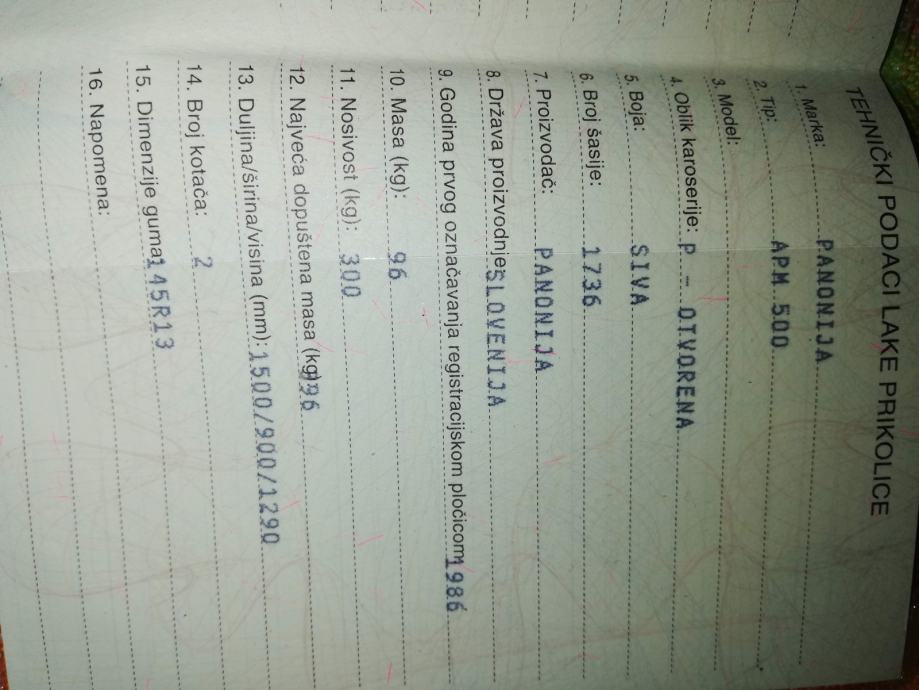 TEHNIČKI PODACI LAKE PRIKOLICE
1. Marka: PANONIJA
2. Tip: APM 500
3. Model:
4. Oblik karoserije: P - OTVORENA
5. Boja: SIVA
6. Broj šasije: 1736
7. Proizvođač: PANONIJA
8. Država proizvodnje: SLOVENIJA
9. Godina prvog označavanja registracijskom pločicom 1986
10. Masa (kg): 96
11. Nosivost (kg): 300
12. Najveća dopuštena masa (kg)
13. Duljina/širina/visina (mm): 1500/900/1290
14. Broj kotača: 2
15. Dimenzije guma: 145R13
16. Napomena: